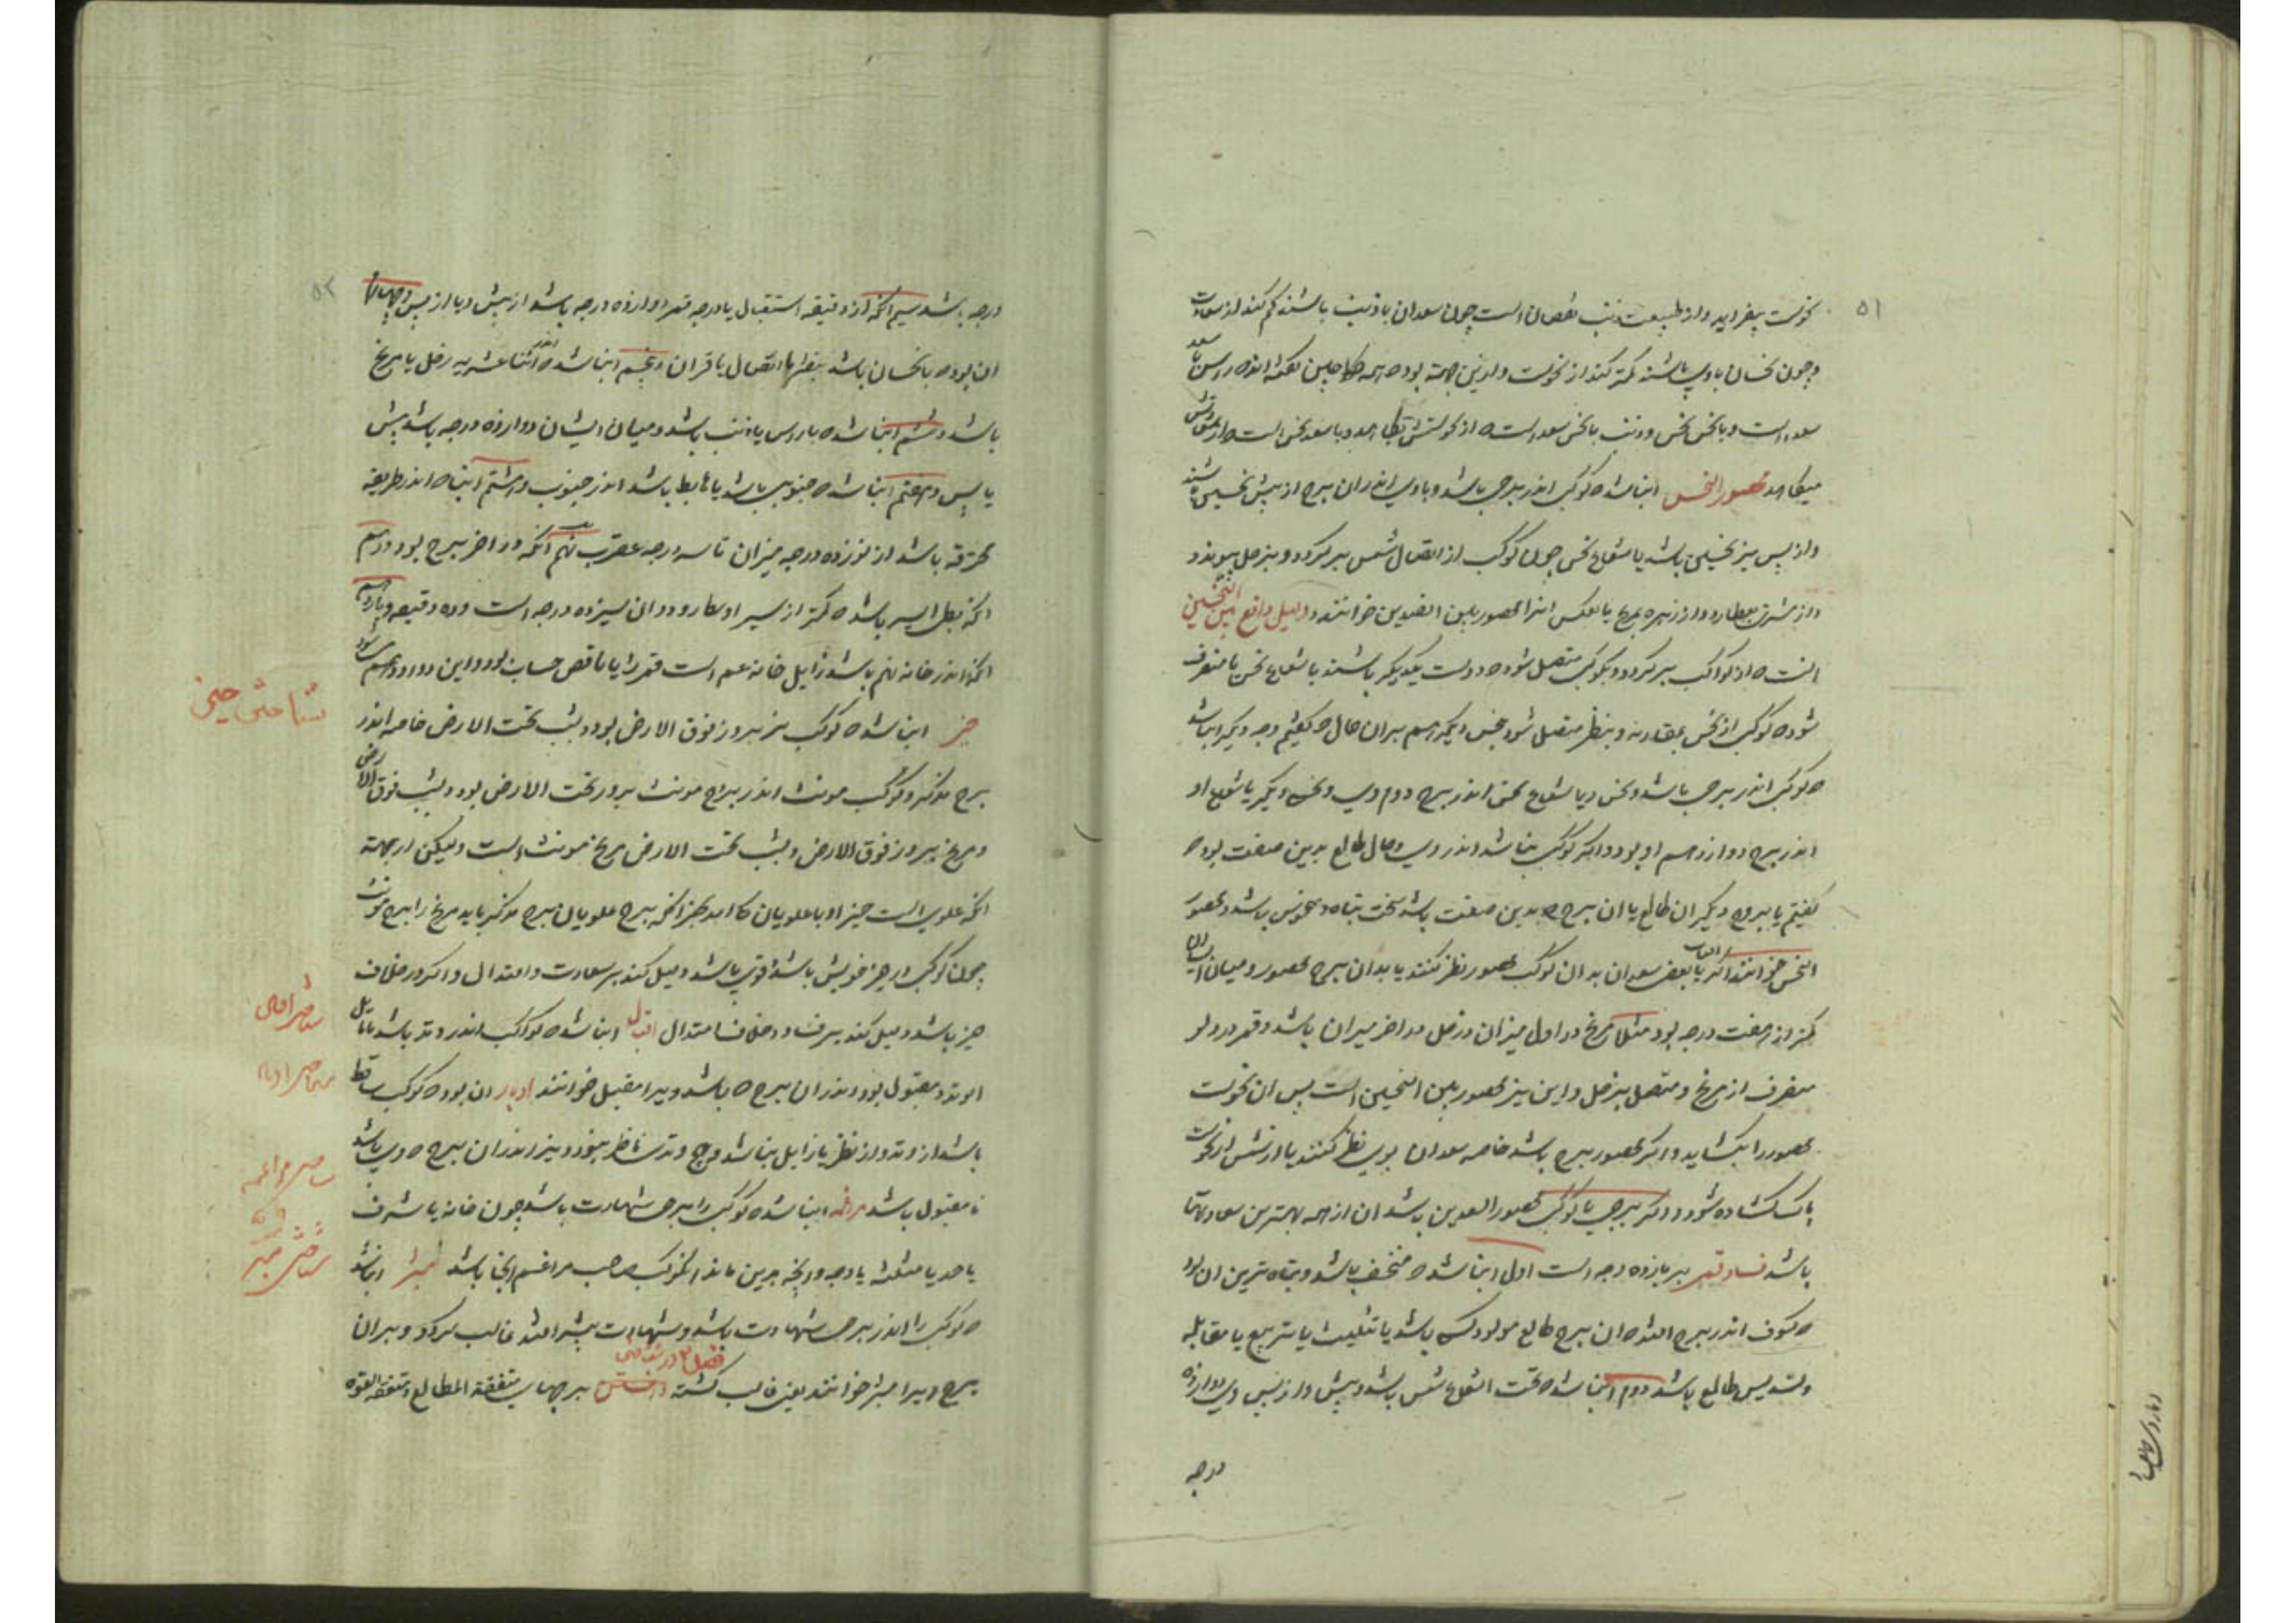 ۵۱
نحوست بیفزاید و از طبیعت ذنب نقصان است چون سعدان با ذنب باشند کم کند از سعادت
و چون نحسان با وی باشند کمتر کند از نحوست و ازین جهة بوده همه گفته اند راس با سعد
سعد است و با نحس نحس و ذنب با نحس سعد است از نحوستش بکاهد و با سعد نحس است از سعادتش
میکاهد محصور النحس ان باشد کوکب اندر برجی باشد و با وی اندران برج از پیش نحسی باشد
و از پس نیز نحسی باشد یا شعاع نحس چون کوکب از اتصال شمس برگردد و بزحل پیوندد
و از مشتری بعطارد و از زهره بمریخ یا بعکس انرا محصور بین خوانند و دلیل واقع بین النحسین
انست از کواکب برگردد و بکوکبی متصل شود و دست یکدیگر باشند یا شعاع نحس یا منصرف
شود کوکب از نحس بمقارنه و بنظر متصل شود بنحس دیگر هم بران حال که گفتیم وجه دیگر ان باشد
که کوکب اندر برجی باشد و نحس و یا شعاع نحس اندر برج دوم وی و نحس دیگر یا شعاع او
اندر برج دوازدهم او بود و اگر کوکب نباشد اندر وی و حال طالع بدین صفت بود که
گفتیم یا بروج دیگر ان طالع یا ان برج که بدین صفت باشد سخت تباه و منحوس باشد و محصور
النحس خوانند اگر یا بعضی سعدان بدان کوکب محصور نظر کنند یا بدان برج محصور و میان ایشان
کمتر از هفت درجه بود مثلا مریخ در اول میزان و زحل در اخر میزان باشد و قمر در دلو
منصرف از مریخ و متصل بزحل و این نیز محصور بین النحسین است پس ان نحوست
محصور را بکشاید و اگر محصور برج باشد خاصه سعدان بوی نظر کنند یا ارنشس از نحوست
پاک کشاده شود و اگر برجی یا کوکبی محصور السعدین باشد ان از همه بهترین سعادتها
باشد فساد قمر بر یازده وجه است اول ان باشد که منخسف باشد و تباه ترین ان بود
که کسوف اندر برج افتد ان برج طالع مولود کسی باشد یا تثلیث یا تربیع یا مقابله
و تسدیس طالع باشد دوم ان باشد که تحت الشعاع شمس باشد و پیش و از پس وی دوازده
درجه
۵۲
درجه باشد سیم انکه از دقیقه استقبال یا درجه قمر دوازده درجه باشد از پیش و یا از پس چهارم
ان بود که با نحسان باشد بنظر یا اتصال یا قران پنجم ان باشد که اندر اثنا عشریه زحل یا مریخ
باشد ششم ان باشد که با راس یا ذنب باشد و میان ایشان دوازده درجه باشد پیش
یا پس و هفتم ان باشد که جنوبی باشد یا هابط باشد اندر جنوب و هشتم انباه اندر طریقه
محترقه باشد از نوزده درجه میزان تا سه درجه عقرب نهم انکه در اخر برج بود دهم
انکه بطی السیر باشد کمتر از سیر اوسط و ان سیزده درجه است و ده دقیقه یازدهم
انکه اندر خانه نهم باشد زایل خانه سیم است قمر را یا ناقص حساب بود و این دوازدهم میشود
حیز ان باشد که کوکب نر بروز فوق الارض بود و بشب تحت الارض خاصه اندر
برج مذکر و کوکب مونث اندر برج مونث بروز تحت الارض بود و بشب فوق الارض
و مریخ بروز فوق الارض و بشب تحت الارض مریخ مونث است ولیکن از جهة
انکه علوی است حیز او با علویان کاهد بجز انکه برج علویان برج مذکر باید مریخ را برج مونث
چون کوکب در حیز خویش باشد قوی باشد و میل کند بر سعادت و اعتدال و اگر در خلاف
حیز باشد و میل کند بر فساد و خلاف اعتدال اقبال ان باشد که کواکب اندر وتد باشد یا مایل
الوتد و مقبول بود اندران برج که باشد و ویرا مقبل خوانند ادبار ان بود که کوکب ساقط
باشد از وتد و از نظر یا زایل باشد و هیچ وتد ناظر نبود و نیز اندران برج که وی باشد
نا مقبول باشد مراغمه ان باشد که کوکب را برجی شهادت باشد چون خانه یا شرف
یا حد یا مثلثه یا وجه و انچه برین ماند انکوکب صاحب مراغم انجا باشد مبتز ان باشد
که کوکب را اندر برجی شهادت باشد و شهادت بیشتر افتد غالب گردد و بران
برج ویرا مبتز خوانند یعنی غالب گشته فصل ۳ در شناختن برجهای متفقة المطالع و متفقة القوة
شناختن حیز
شناختن اقبال
شناختن ادبار
شناختن مراغمه
شناختن مبتز